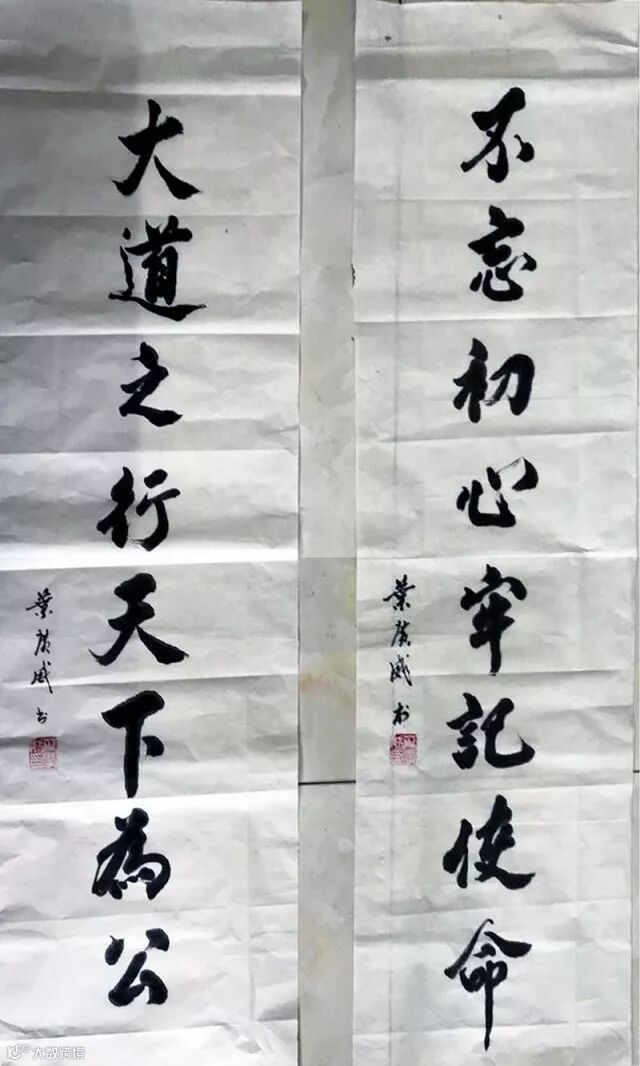 不忘初心牢記使命
葉廣威书
大道之行天下為公
葉廣威书
大数跨境